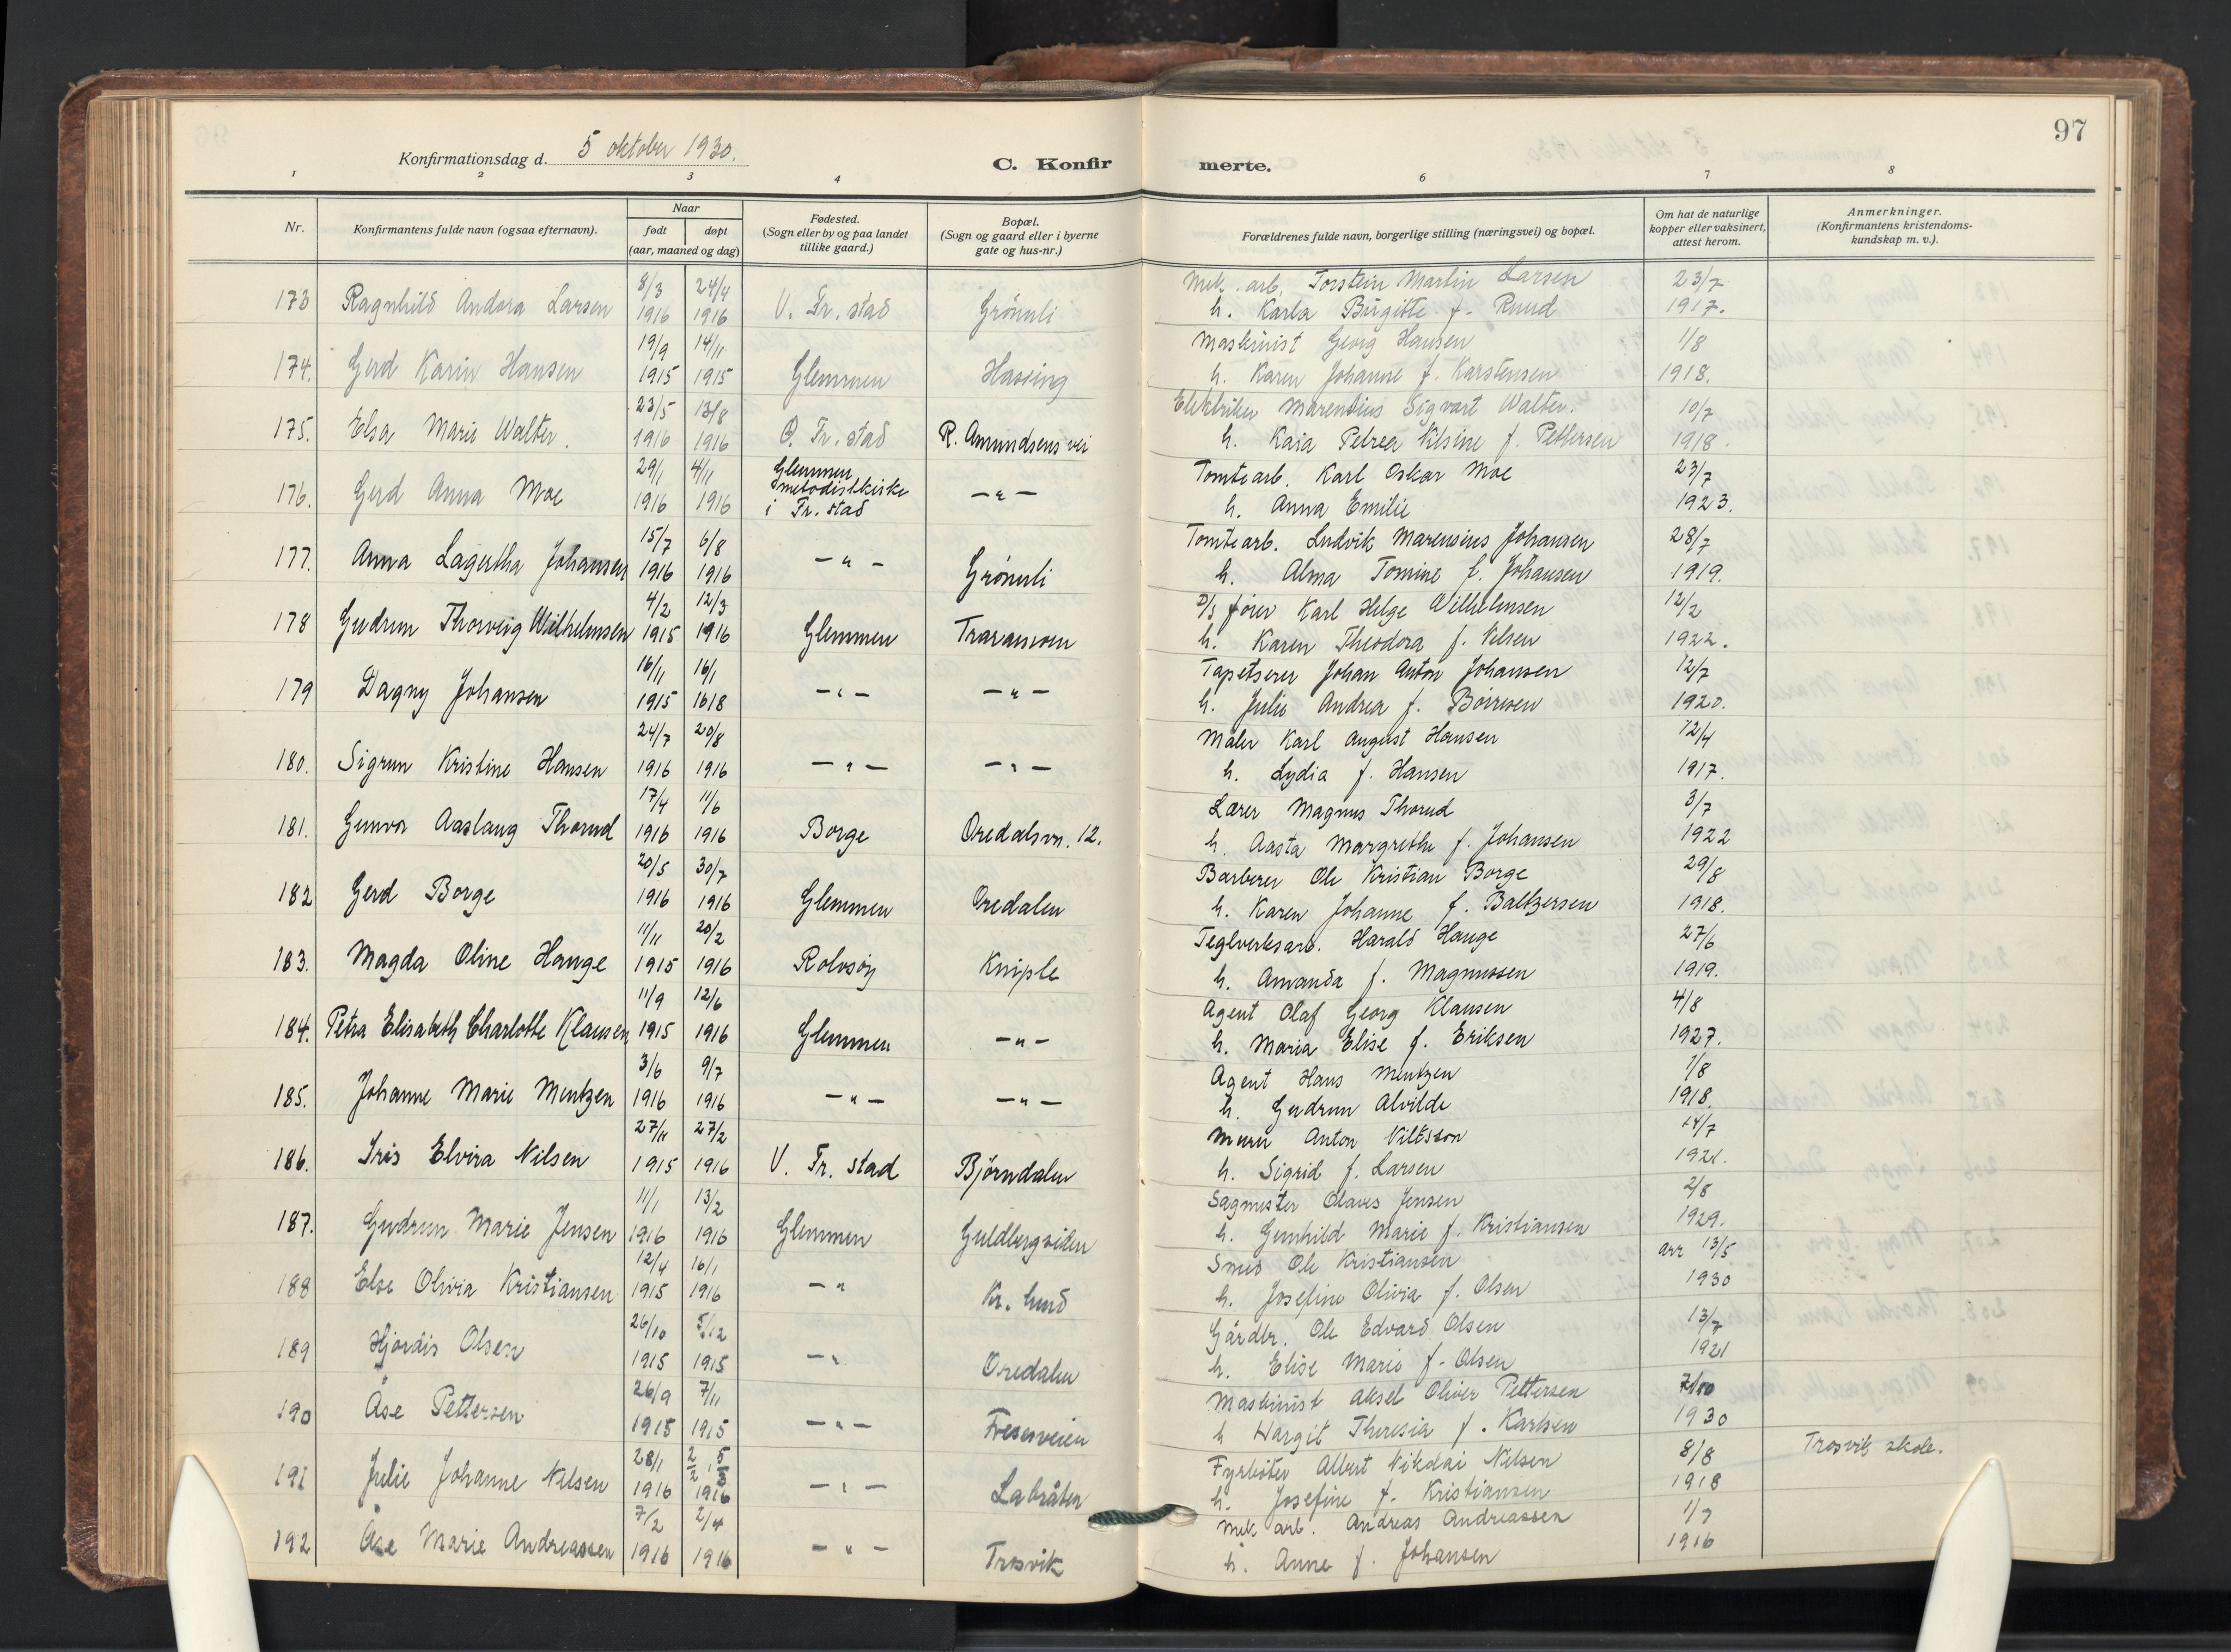 97
Konfirmationsdag d. 5 oktober 1930.
C. Konfirmerte.
1 2 3 4 6 7 8
Nr.
Konfirmantens fulde navn (ogsaa efternavn).
Naar
født døpt
(aar, maaned og dag)
Fødested.
(Sogn eller by og paa landet
tillike gaard.)
Bopæl.
(Sogn og gaard eller i byerne
gate og hus-nr.)
Forældrenes fulde navn, borgerlige stilling (næringsvei) og bopæl.
Om hat de naturlige
kopper eller vaksinert,
attest herom.
Anmerkninger.
(Konfirmantens kristendoms-
kundskap m. v.).
8/3 24/4 Mek. arb. Torstein Martin Larsen 23/7
173 Ragnhild Andora Larsen 1916 1916 V. Fr. stad Grönli h. Karla Birgitte f. Ruud 1917.
19/9 14/11 Maskinist Georg Hansen 1/8
174. Gerd Karin Hansen 1915 1915 Glemmen Hassing h. Karen Johanne f. Karstensen 1918.
23/5 13/8 Elektriker Marensius Sigvart Walter. 10/7
175. Elsa Marie Walter. 1916 1916 Ö. Fr. stad R. Amundsens vei h. Kaia Petrea Nilsine f. Pettersen 1918.
29/1 4/11 Glemmen metodistkirke Tomtearb. Karl Oskar Moe 23/7
176. Gerd Anna Moe 1916 1916 i Fr. stad — " — h. Anna Emilie 1923.
15/7 6/8 Tomtearb. Ludvik Marensius Johansen 28/7
177. Anna Lagertha Johansen 1916 1916 — " — Grönli h. Alma Tomine f. Johansen 1919.
4/2 12/3 D/S förer Karl Helge Wilhelmsen 12/2
178 Gudrun Thorveig Wilhelmsen 1915 1916 Glemmen Traramoen h. Karen Theodora f. Nilsen 1922.
16/11 16/1 Tapetserer Johan Anton Johansen 12/7
179 Dagny Johansen 1915 1618 — " — — " — h. Julie Andrea f. Börresen 1920.
24/7 20/8 Maler Karl August Hansen 12/4
180. Sigrun Kristine Hansen 1916 1916 — " — — " — h. Lydia f. Hansen 1917.
17/4 11/6 Lærer Magnus Thorud 3/7
181. Gunvor Aaslaug Thorud 1916 1916 Borge Oredalsvn. 12. h. Aasta Margrethe f. Johansen 1922
20/5 30/7 Barberer Ole Kristian Borge 29/8
182 Gerd Borge 1916 1916 Glemmen Oredalen h. Karen Johanne f. Baltzersen 1918.
11/11 20/2 Teglverksarb. Harald Hauge 27/6
183. Magda Oline Hauge 1915 1916 Rolvsöy Kniple h. Amanda f. Magnussen 1919.
11/9 12/6 Agent Olaf Georg Klausen 4/8
184. Petra Elisabeth Charlotte Klausen 1915 1916 Glemmen — " — h. Maria Elise f. Eriksen 1927.
3/6 9/7 Agent Hans Mentzen 1/8
185. Johanne Marie Mentzen 1916 1916 — " — — " — h. Gudrun Alvilde 1918.
27/11 27/2 Murer Anton 14/7
186. Iris Elvira Nilsen 1915 1916 V. Fr. stad Björndalen h. Sigrid f. Larsen 1921.
11/1 13/2 Sagmester Olaves Jensen 2/8
187. Gudrun Marie Jensen 1916 1916 Glemmen Guldbergsiden h. Gunhild Marie f. Kristiansen 1929.
12/4 16/1 Smed Ole Kristiansen arr 13/5
188 Else Olivia Kristiansen 1915 1916 — " Kr. lund h. Josefine Olivia f. Olsen 1930
26/10 5/12 Gårdbr. Ole Edvard Olsen 13/7
189 Hjördis Olsen 1915 1915 — " Oredalen h. Elise Marie f. Olsen 1921
26/9 7/11 Maskinist Aksel Oliver Pettersen 7/10
190 Åse Pettersen 1915 1915 — " — Fresesveien h Hargit Theresia f. Karlsen 1930
28/1 2/2, 5/3 Fyrböter Albert Nikolai Nilsen 8/8 Trosvik skole.
191 Julie Johanne Nilsen 1916 1916 — " — Labråten h. Josefine f. Kristiansen 1918
7/2 2/4 Mek arb. Andreas Andreassen 1/7
192 Åse Marie Andreassen 1916 1916 — " — Trosvik h. Anne f. Johansen 1916